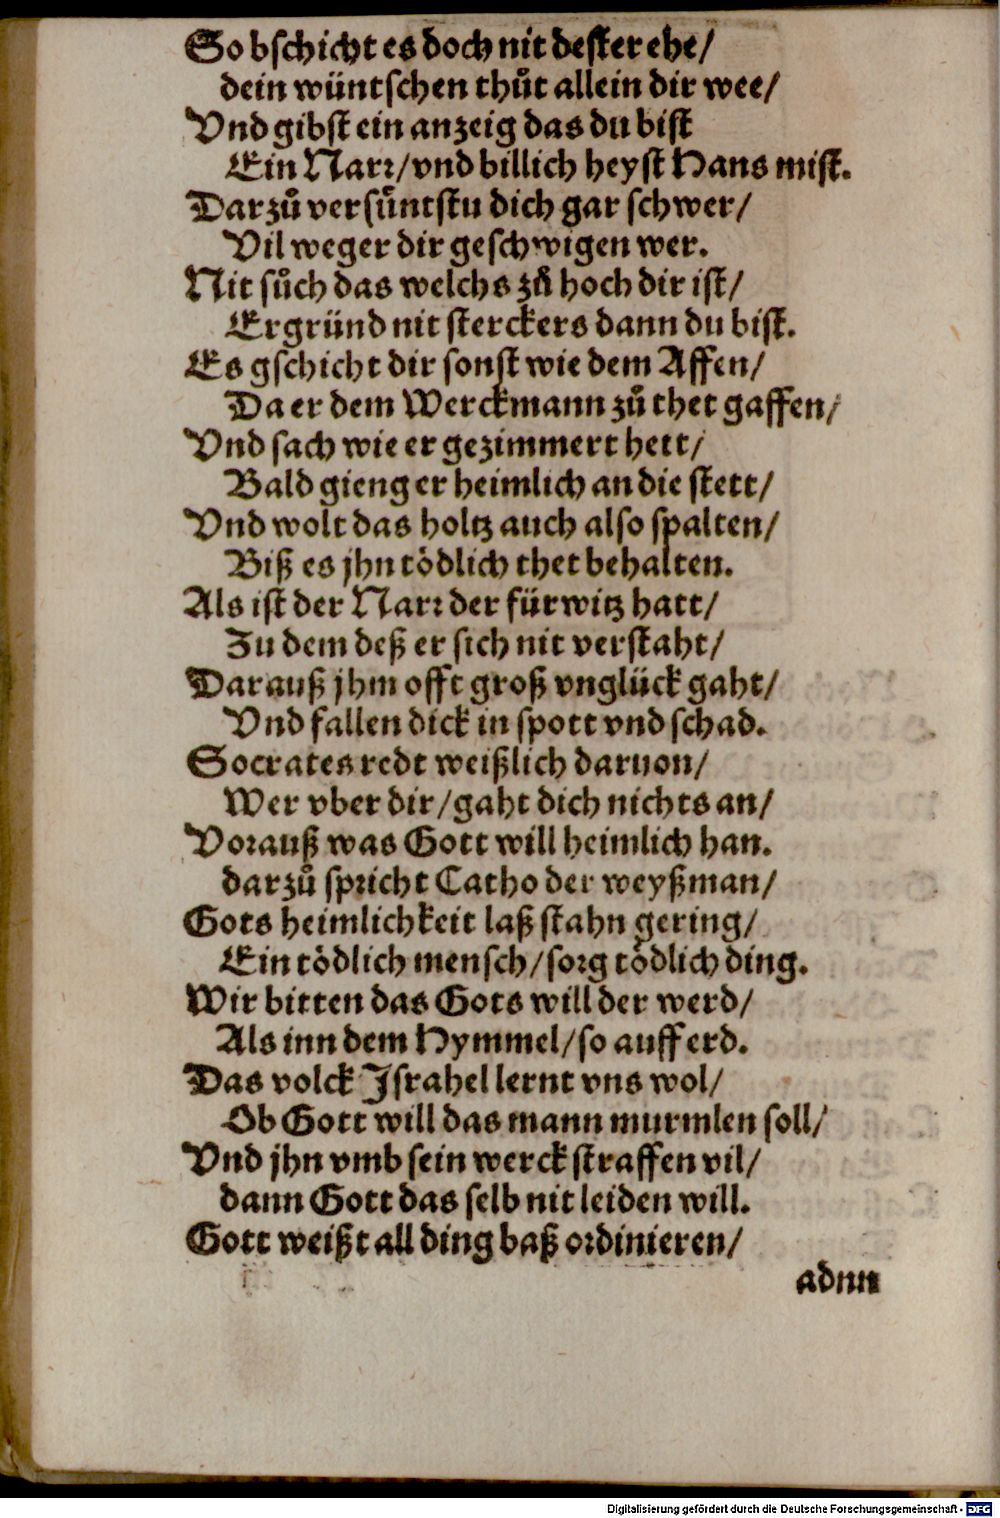 So bschicht es doch nit dester ehe/
dein wüntschen thuͦt allein dir wee/
Vnd gibst ein anzeig das du bist
Ein Narr/vnd billich heyst Hans mist.
Darzuͦ versuͤntstu dich gar schwer/
Vil weger dir geschwigen wer.
Nit suͦch das welchs zuͦ hoch dir ist/
Ergründ nit sterckers dann du bist.
Es gschicht dir sonst wie dem Affen/
Da er dem Werckmann zuͦ thet gaffen/
Vnd sach wie er gezimmert hett/
Bald gieng er heimlich an die stett/
Vnd wolt das holtz auch also spalten/
Biß es jhn tödlich thet behalten.
Als ist der Narr der fürwitz hatt/
Zu dem deß er sich nit verstaht/
Darauß jhm offt groß vnglück gaht/
Vnd fallen dick in spott vnd schad.
Socrates redt weißlich daruon/
Wer vber dir/gaht dich nichts an/
Vorauß was Gott will heimlich han.
darzuͦ spricht Catho der weyßman/
Gots heimlichkeit laß stahn gering/
Ein tödlich mensch/sorg tödlich ding.
Wir bitten das Gots will der werd/
Als inn dem Hymmel/so auff erd.
Das volck Israhel lernt vns wol/
Ob Gott will das mann murmlen soll/
Vnd jhn vmb sein werck straffen vil/
dann Gott das selb nit leiden will.
Gott weißt all ding baß ordinieren/
adnn
Digitalisierung gefördert durch die Deutsche Forschungsgemeinschaft - DFG